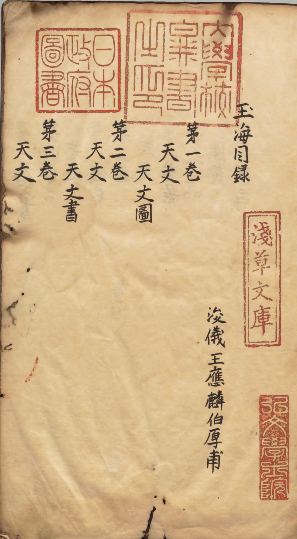 玉海目録
浚儀王應麟伯厚甫
第一巻
天文
天文圖
第二巻
天文
天文書
第三巻
天文
大學校
圖書
之印
日本
政府
圖書
淺草文庫
弘文學士院